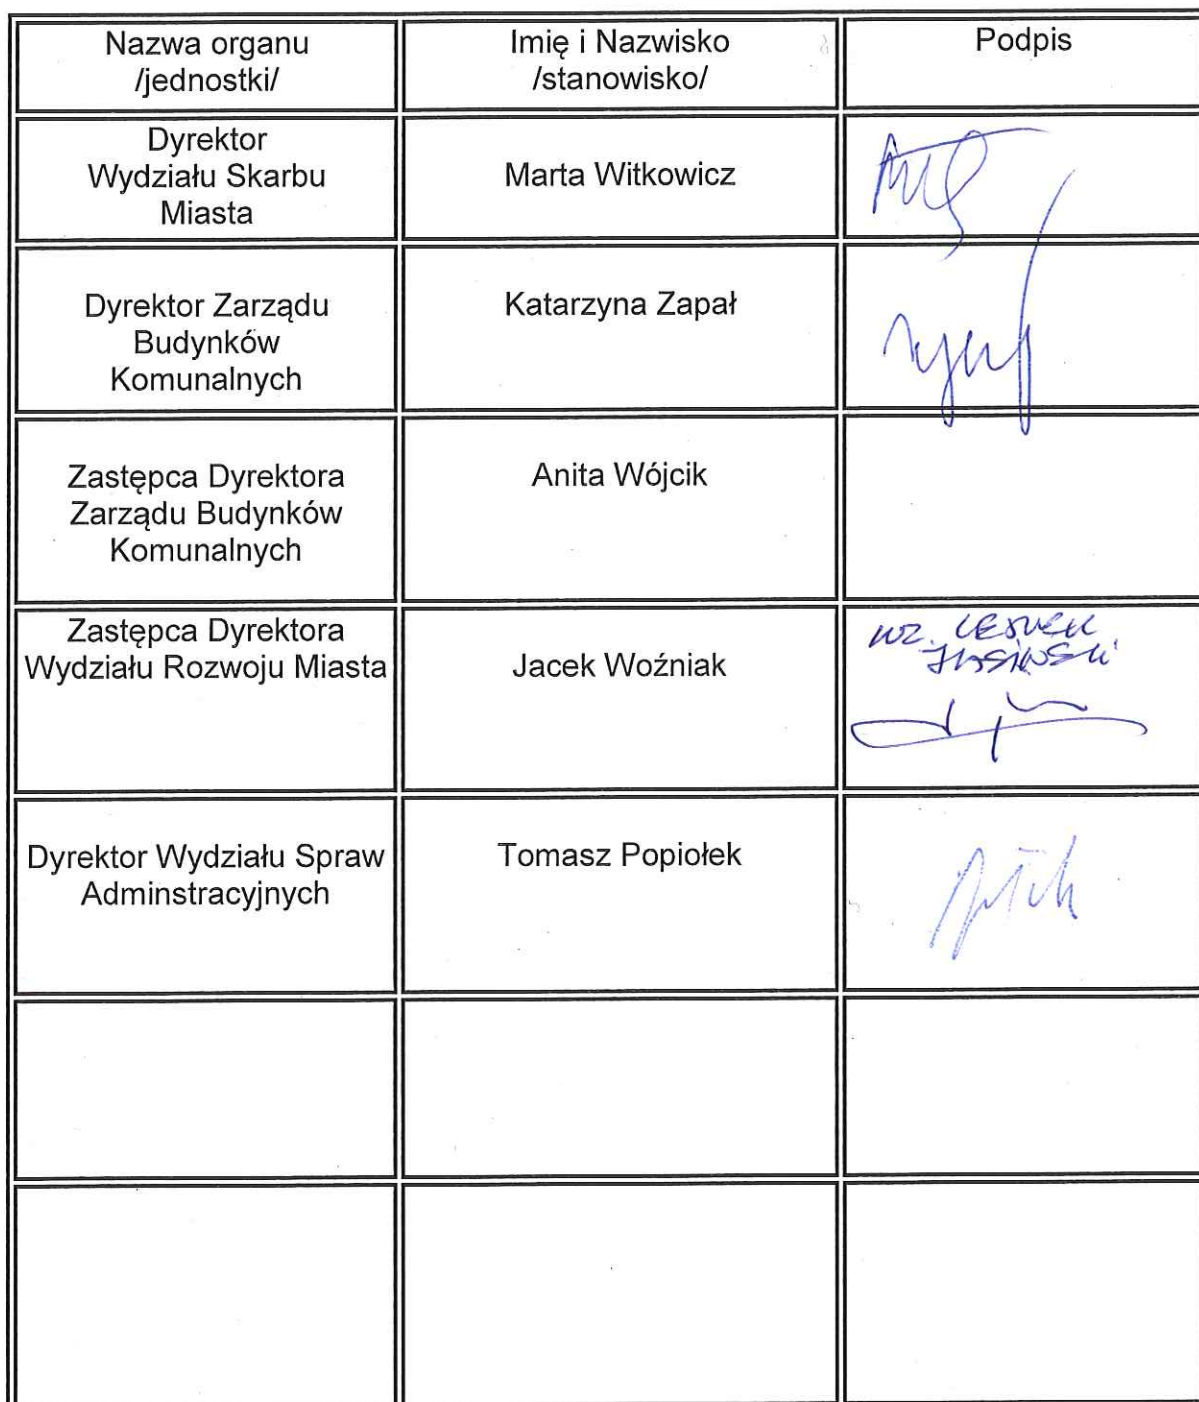 Nazwa organu
/jednostki/
Imię i Nazwisko
/stanowisko/
Podpis
Dyrektor
Wydziału Skarbu
Miasta
Marta Witkowicz
Dyrektor Zarządu
Budynków
Komunalnych
Katarzyna Zapał
Zastępca Dyrektora
Zarządu Budynków
Komunalnych
Anita Wójcik
Zastępca Dyrektora
Wydziału Rozwoju Miasta
Jacek Woźniak
wz. LESZEK
JASIŃSKI
Dyrektor Wydziału Spraw
Adminstracyjnych
Tomasz Popiołek